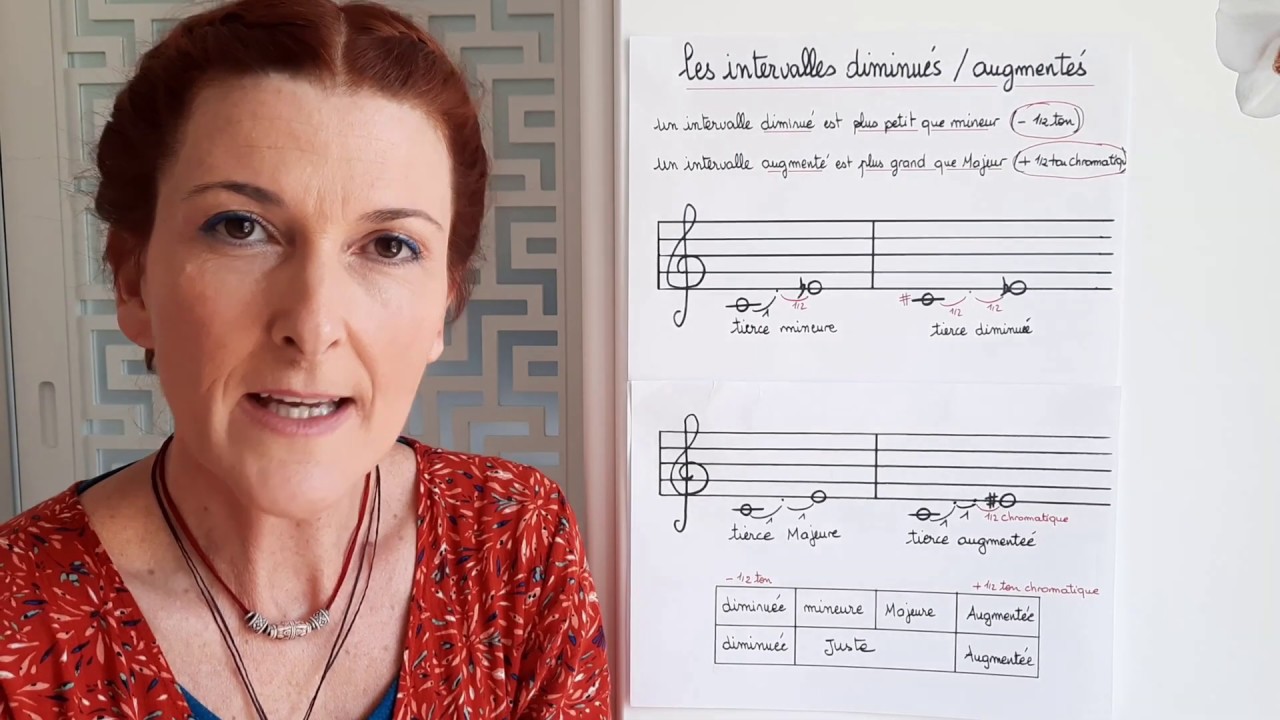 les intervalles diminués / augmentés
un intervalle diminué est plus petit que mineur (- 1/2 ton)
un intervalle augmenté est plus grand que Majeur (+ 1/2 ton chromatiqu
1 1/2
# 1/2 1/2
tierce mineure tierce diminuée
1 1
1 1 1/2 chromatique
tierce Majeure tierce augmenteé
- 1/2 ton + 1/2 ton chromatique
diminuée mineure Majeure Augmentée
diminuée Juste Augmentée